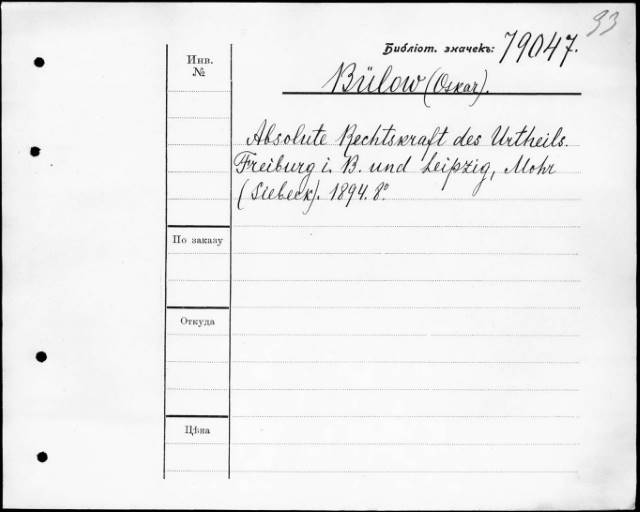 93
Библіот. значекъ: 79047.
Инв.
№
Bülow (Oskar).
Absolute Rechtskraft des Urtheils.
Freiburg i. B. und Leipzig, Mohr
(Siebeck). 1894. 8°.
По заказу
Откуда
Цѣна